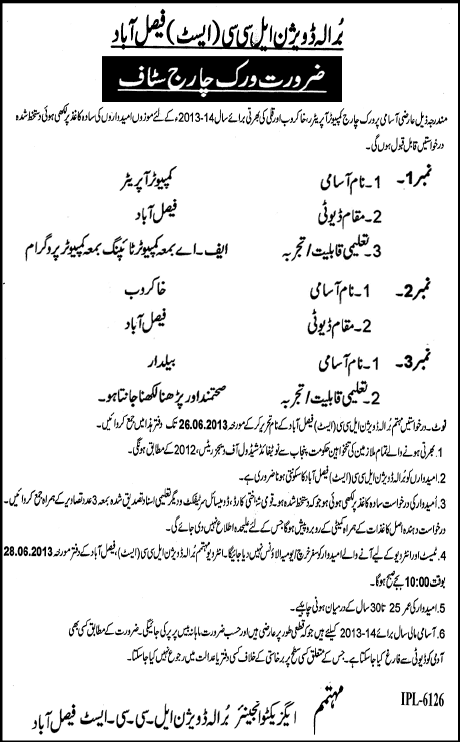 بُرالہ ڈویژن ایل سی سی (ایسٹ) فیصل آباد
ضرورت ورک چارج سٹاف
مندرجہ ذیل عارضی آسامی پر ورک چارج کمپیوٹر آپریٹر، خاکروب اور قلی کی بھرتی برائے سال 14-2013ء کے لئے موزوں امیدواروں کی سادہ کاغذ پر لکھی ہوئی دستخط شدہ
درخواستیں قابل قبول ہوں گی۔
نمبر 1۔ 1۔ نام آسامی کمپیوٹر آپریٹر
2۔ مقام ڈیوٹی فیصل آباد
3۔ تعلیمی قابلیت/تجربہ ایف۔اے بمعہ کمپیوٹر ٹائپنگ بمعہ کمپیوٹر پروگرام
نمبر 2۔ 1۔ نام آسامی خاکروب
2۔ مقام ڈیوٹی فیصل آباد
نمبر 3۔ 1۔ نام آسامی بیلدار
2۔ تعلیمی قابلیت/تجربہ صحتمند اور پڑھنا لکھنا جانتا ہو۔
نوٹ۔ درخواستیں مہتمم بُرالہ ڈویژن ایل سی سی (ایسٹ) فیصل آباد کے نام تحریر کر کے مورخہ 26.06.2013 تک دفتر ہذا میں جمع کروائیں۔
1۔ بھرتی ہونے والے تمام ملازمین کی تنخواہیں حکومت پنجاب سے نوٹیفائڈ شیڈول آف ویجز ریٹس، 2012 کے مطابق ہونگی۔
2۔ امیدواروں کو بُرالہ ڈویژن ایل سی سی (ایسٹ) فیصل آباد کا سکونتی ہونا ضروری ہے۔
3۔ اُمیدوار کی درخواست سادہ کاغذ پر لکھی ہوئی ہو جو کہ دستخط شدہ ہو۔ قومی شناختی کارڈ، ڈومیسائل سرٹیفکیٹ و دیگر تعلیمی اسناد تصدیق شدہ بمعہ 3 عدد تصاویر کے ہمراہ جمع کروائیں۔
درخواست دہندہ اصل کاغذات کے ہمراہ کمیٹی کے روبرو پیش ہوگا جس کے لئے علیحدہ اطلاع نہیں دی جائے گی۔
4۔ ٹیسٹ اور انٹرویو کے لیے آنے والے امیدوار کو سفر خرچ/یومیہ الاؤنس نہیں دیا جائیگا۔ انٹرویو مہتمم بُرالہ ڈویژن ایل سی سی (ایسٹ)، فیصل آباد کے دفتر مورخہ 28.06.2013
بوقت 10:00 بجے صبح ہوگا۔
5۔ امیدوار کی عمر 25 تا 30 سال کے درمیان ہونی چاہیے۔
6۔ آسامی مالی سال برائے 14-2013 کیلئے ہیں جو کہ قطعی طور پر عارضی ہیں اور حسب ضرورت ماہانہ بیس پر پر کی جائیگی۔ ضرورت کے مطابق کسی بھی
آدمی کو ڈیوٹی سے فارغ کیا جاسکتا ہے۔ جس کے متعلق کسی سطح پر برخاستی کے خلاف کسی دفتر یا عدالت میں رجوع نہیں کیا جاسکتا۔
IPL-6126 مہتمم
ایگزیکٹو انجینئر بُرالہ ڈویژن ایل۔سی۔سی۔ایسٹ فیصل آباد